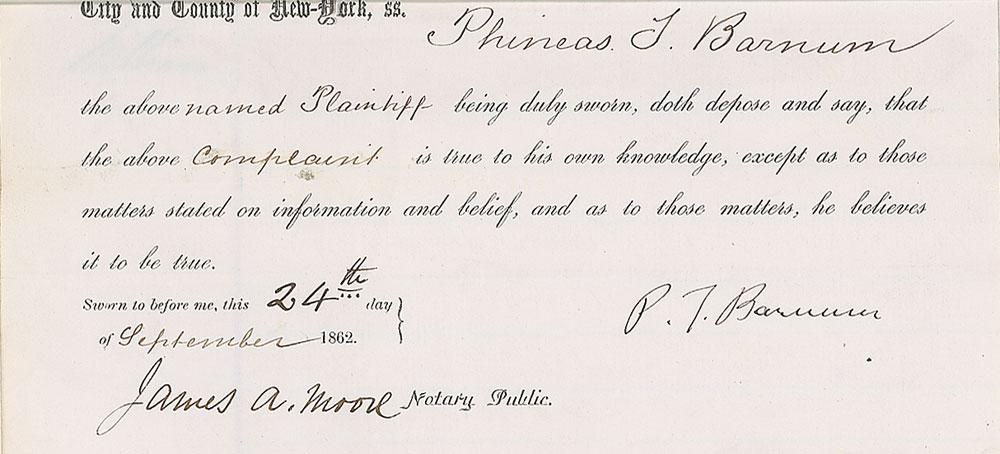 City and County of New-York, ss.
Phineas. T. Barnum
the above named Plaintiff being duly sworn, doth depose and say, that
the above Complaint is true to his own knowledge, except as to those
matters stated on information and belief, and as to those matters, he believes
it to be true.
Sworn to before me, this 24th day
of September 1862.
P. T. Barnum
James A. Moore Notary Public.